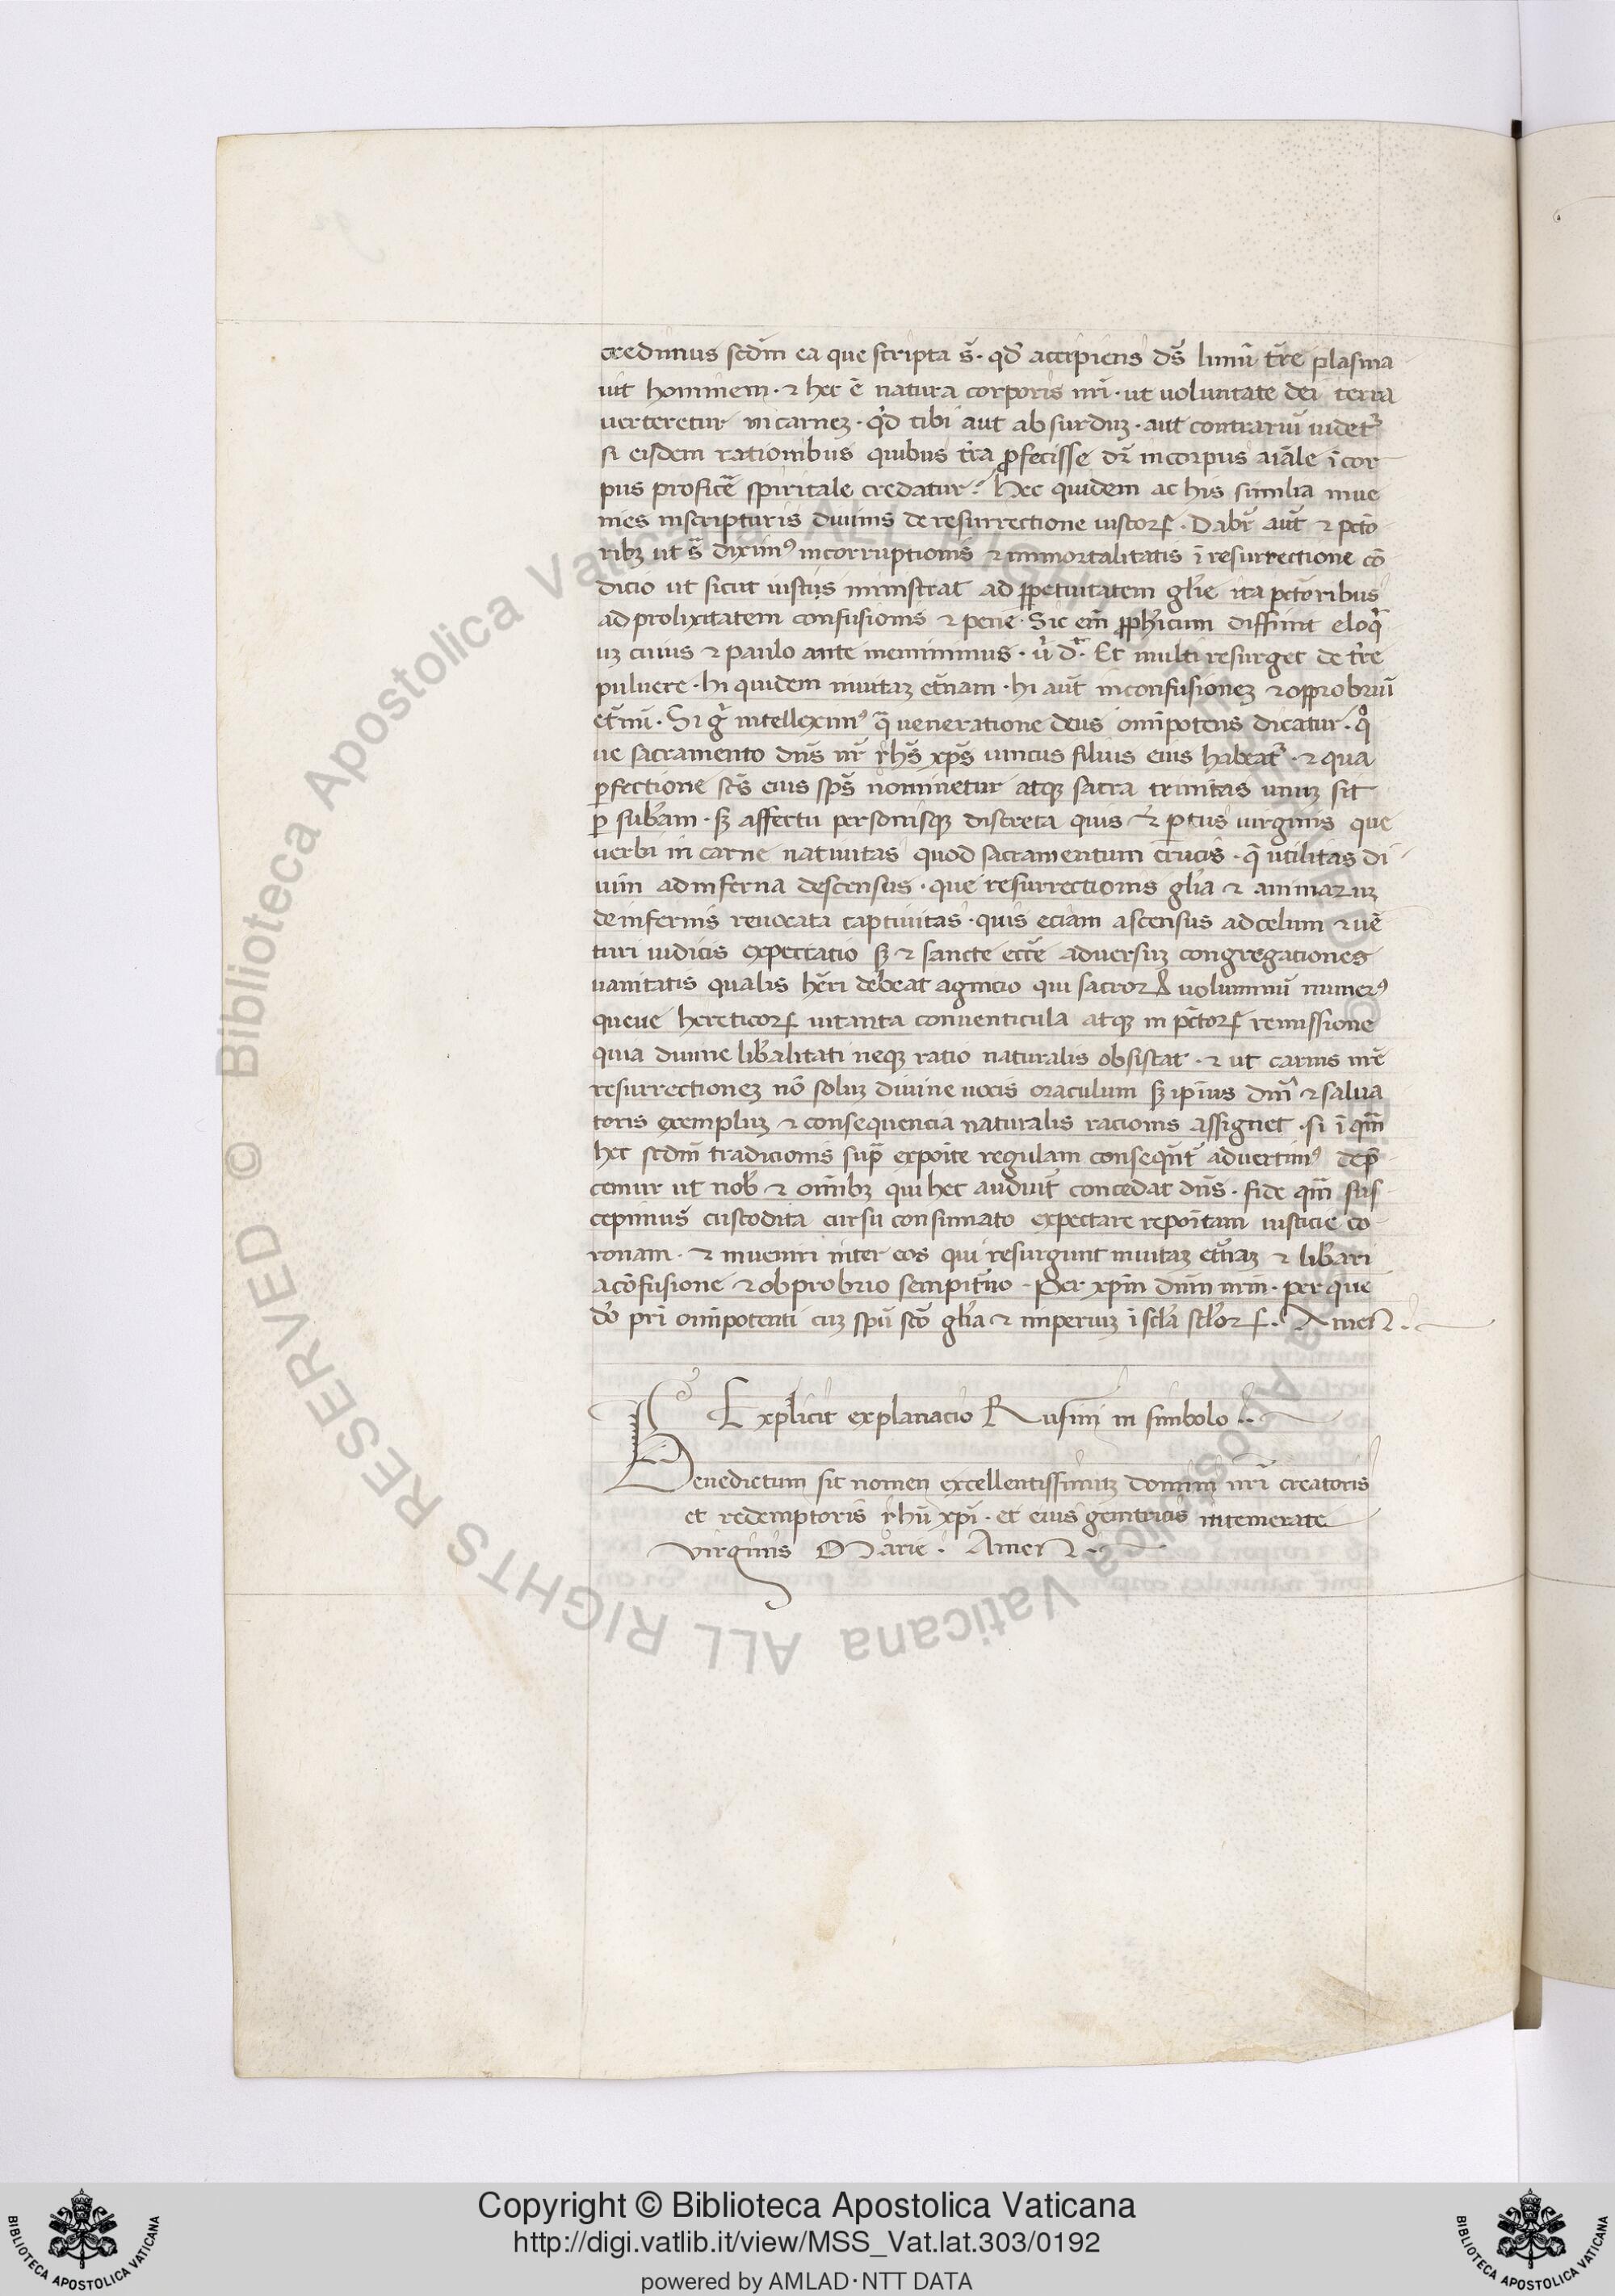 credimus scdm̄ ea que scripta s̄. qd̓ accipiens ds̄ limū tr̄e plasma
uit hominem. ⁊ hec ē natura corporis nr̄i. ut uoluntate dei terra
uerteretur in carneꝫ. qd̓ tibi aut absurduꝫ. aut contrariū uidet᷑
si eisdem rationibus quibus tr̄a ꝓfecisse dr̄ in corpus aīale ī cor
pus proficē spiritale credatur? Hec quidem ac his similia inue
nies in scripturis diuinis de resurrectione iustorꝝ. Dabr̄ aut̄ ⁊ pctō
ribꝫ ut s̄ diximꝰ incorruptionis ⁊ immortalitatis ī resurrectione cō
dicio ut sicut iustis ministrat ad ꝑpetuitatem glīe ita pctōribus
ad prolixitatem confusionis ⁊ pene. Sic em̄ ꝓphicum diffinit eloq̄
uꝫ cuius ⁊ paulo ante meminimus. u̓ d̄r. Et multi resurget de tr̄e
puluere. hi quidem in uitaꝫ et̄nam. hi aut̄ in confusioneꝫ ⁊ opprobriū
et̄nū. Si g̓ intelleximꝰ qua ueneratione deus omīpotens dicatur. qͦ
ue sacramento dns̄ nr̄ ihs̄ xp̄s unicus filius eius habeat᷑. ⁊ qua
ꝑfectione scs̄ eius sps̄ nominetur atqꝫ sacra trinitas unuꝫ sit
ꝑ subāam. sꝫ affectu personisqꝫ discreta quis ⁊ ꝑtus uirginis que
uerbi in carne natiuitas quod sacramentum crucis. q̄ utilitas di
uini ad inferna descensus. que resurrectionis glīa ⁊ animaruꝫ
de infernis reuocata captiuitas. quis eciam ascensus ad celum ⁊ uē
turi iudicis expectatio sꝫ ⁊ sancte eccē aduersuꝫ congregationes
uanitatis qualis hēri debeat agnicio qui sacrorꝝ uoluminū numerꝰ
queue hereticorꝝ uitanta conuenticula atqꝫ in pctōrꝝ remissione
quia diuine libālitati neqꝫ ratio naturalis obsistat. ⁊ ut carnis nrē
resurrectioneꝫ nō soluꝫ diuine uocis oraculum sꝫ ipīus dnī ⁊ salua
toris exempluꝫ ⁊ consequencia naturalis racionis assignet. si ī qm̄
hec scdm̄ tradicionis supra expoīte regulam conseqn̄t aduertimꝰ dep̄
cemur ut nob̄ ⁊ omībꝫ qui hec audiūt concedat dns̄. fide qm̄ sus
cepimus custodita cursu consumato expectare repoītam iusticie co
ronam. ⁊ inueniri inter eos qui resurgunt in uitaꝫ et̄naꝫ ⁊ libāri
a cōfusione ⁊ obprobrio sempit̄no. Per xpm̄ dnm̄ nrm̄. per que
dō pri̅ omīpotenti cuꝫ spū sctō glīa ⁊ imperiuꝫ ī sclā sclōrꝝ. Amen.
Explicit explanacio Rufini in simbolo..
Benedictum sit nomen excellentissimuꝫ domini nri̅ creatoris
et redemptoris ihū xpi̅. et eius genitricis intemerate
virginis Marie. Amen.
Copyright © Biblioteca Apostolica Vaticana
http://digi.vatlib.it/view/MSS_Vat.lat.303/0192
powered by AMLAD · NTT DATA
BIBLIOTECA APOSTOLICA VATICANA
BIBLIOTECA APOSTOLICA VATICANA
© Biblioteca Apostolica Vaticana ALL RIGHTS RESERVED